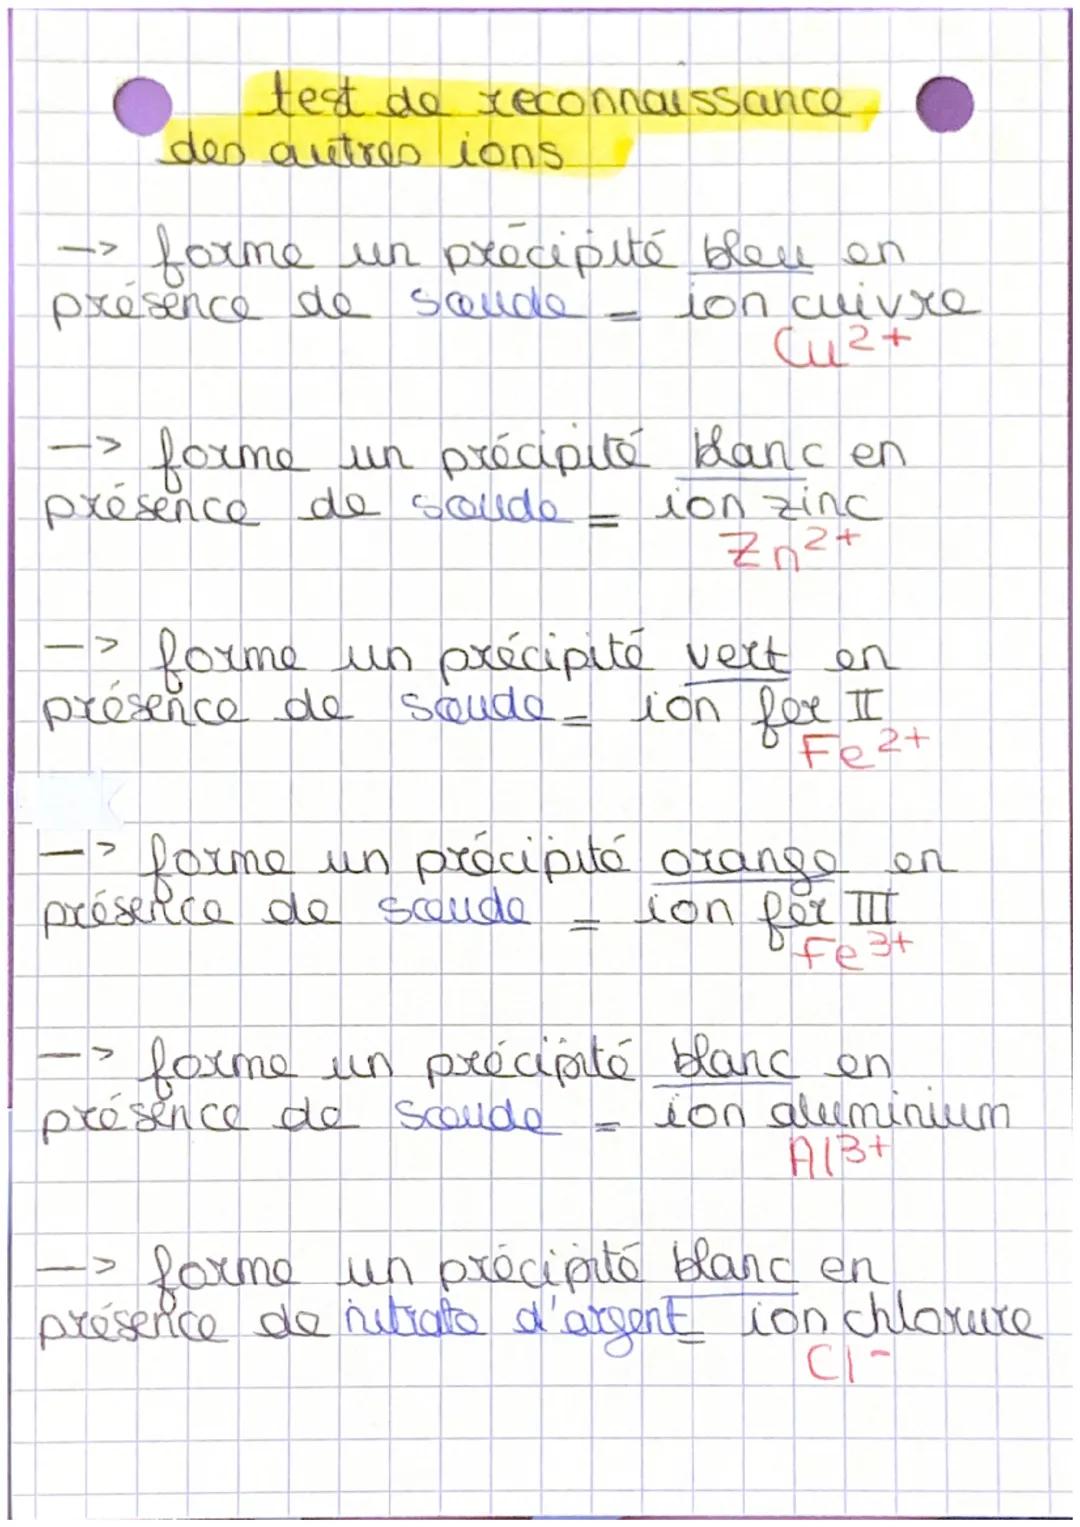 test de reconnaissance
des autres ions
-> forme un précipité bleu en
présence de soude = ion cuivre
Cu2+
-> forme un précipité blanc en
présence de soude = ion zinc
Zn2+
-> forme un précipité vert en
présence de soude = ion fer II
Fe2+
-> forme un précipité orange en
présence de soude = ion fer III
Fe3+
-> forme un précipité blanc en
présence de soude = ion aluminium
Al3+
-> forme un précipité blanc en
présence de nitrate d'argent = ion chlorure
Cl-